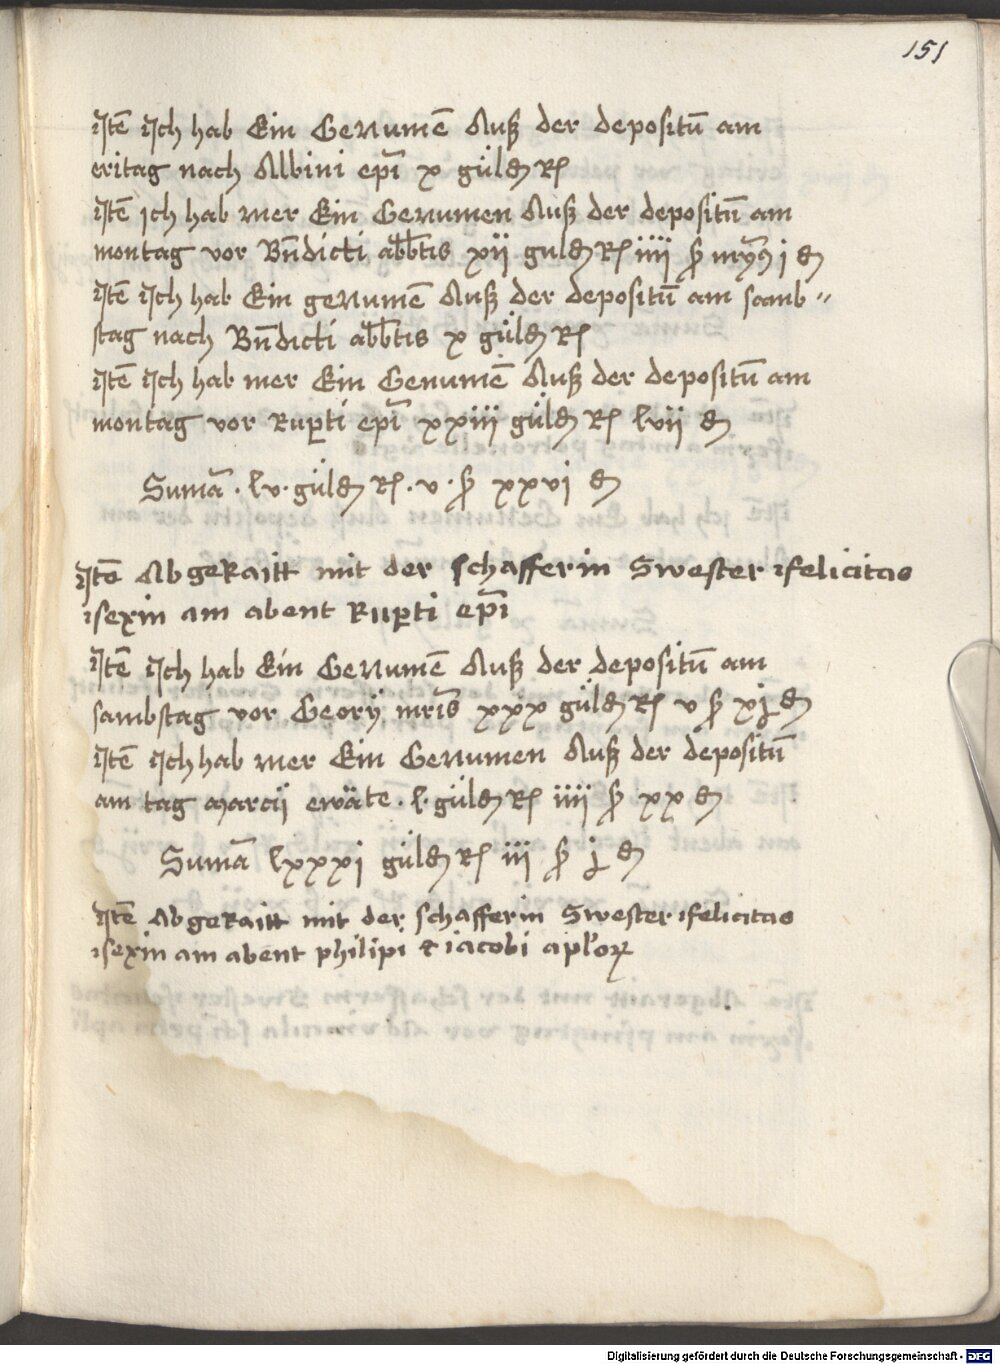 151
Itē Ich hab Ein Genumē Auß der depositū am
eritag nach Albini ep̄i x güld Rſ
Itē ich hab mer Ein Genumen Auß der depositū am
montag vor Bn̄dicti abb̄tis xii guld Rſ iiii ß i d
Itē Ich hab Ein genumē Auß der depositū am samb〃
stag nach Bn̄dicti abb̄tis x güld Rſ
Itē Ich hab mer Ein Genumē Auß der depositū am
montag vor Rup̲ti ep̄i xxiii güld Rſ lvii d
Sumā . lv . güld Rſ . v . ß xxvi d
Itē Abgeraitt mit der schafferin Swester felicitas
sexin am abent Rup̲ti ep̄i
Itē Ich hab Ein Genumē Auß der depositū am
sambstag vor Georÿ mr̄is xxx güld Rſ v ß xi d
Itē Ich hab mer Ein Genumen Auß der depositū
am tag marcÿ ewāte . l . güld Rſ iiii ß xx d
Sumā lxxxi güld Rſ iii ß i d
Itē Abgeraitt mit der schafferin Swester felicitas
sexin am abent philipi & iacobi apl'oꝝ
Digitalisierung gefördert durch die Deutsche Forschungsgemeinschaft - DFG